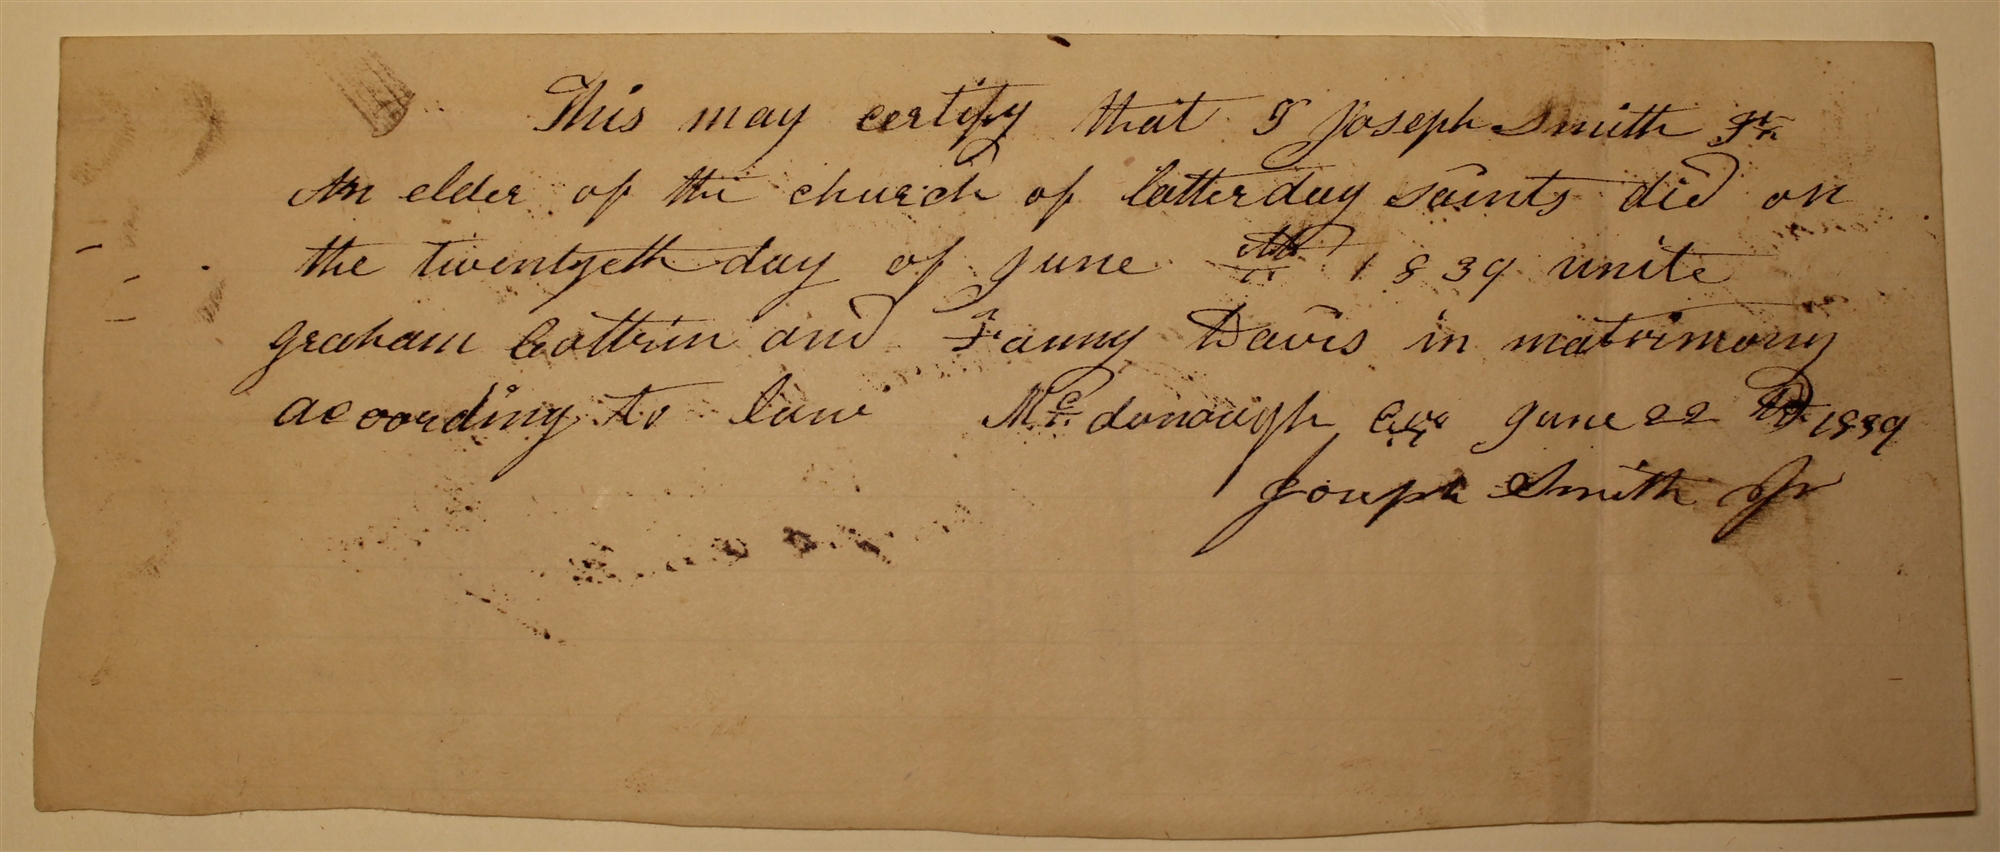 This may certify that I Joseph Smith Jr
An elder of the church of latterday saints did on
the twentyeth day of June AD 1839 unite
graham Cottrin and Fanny Davis in matrimony
according to law Mc.donough June 22 AD 1839
Joseph Smith Jr